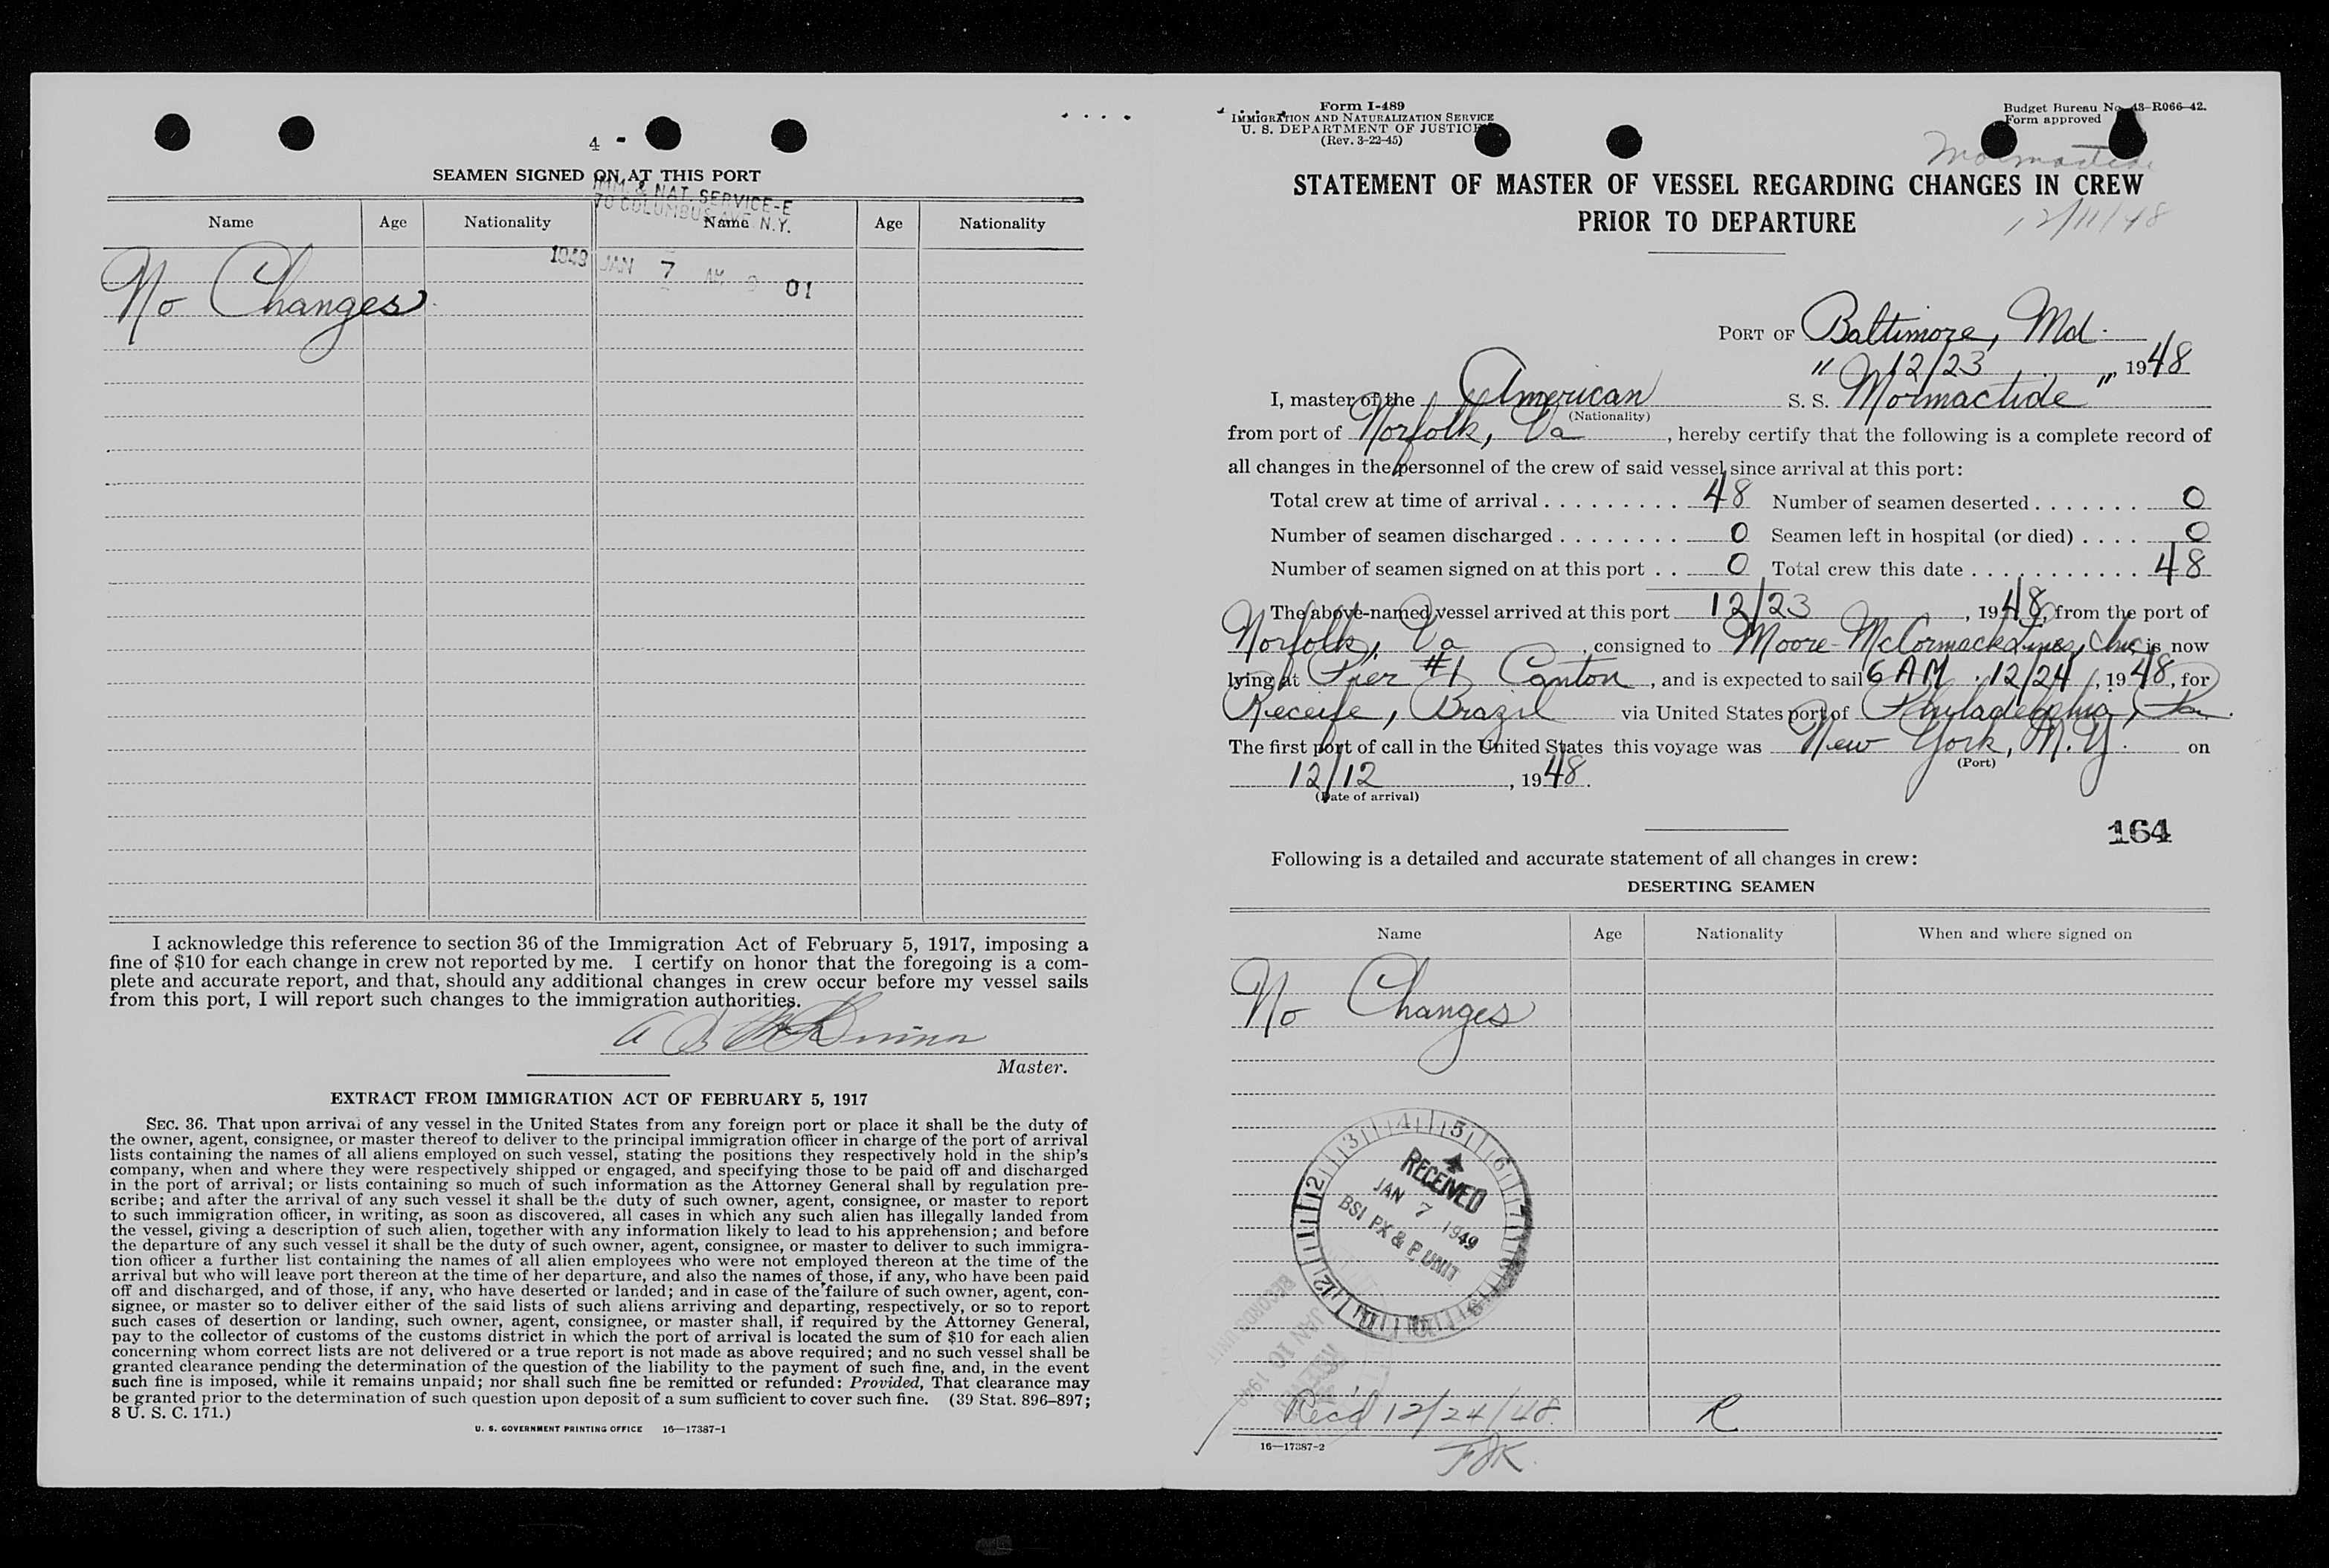 4 -
SEAMEN SIGNED ON AT THIS PORT
IMM. & NAT. SERVICE-E
70 COLUMBUS AVE N.Y.
Name Age Nationality Name Age Nationality
1949 JAN 7 AM 9 01
No Changes
I acknowledge this reference to section 36 of the Immigration Act of February 5, 1917, imposing a
fine of $10 for each change in crew not reported by me. I certify on honor that the foregoing is a com-
plete and accurate report, and that, should any additional changes in crew occur before my vessel sails
from this port, I will report such changes to the immigration authorities.
A B
Master.
EXTRACT FROM IMMIGRATION ACT OF FEBRUARY 5, 1917
SEC. 36. That upon arrival of any vessel in the United States from any foreign port or place it shall be the duty of
the owner, agent, consignee, or master thereof to deliver to the principal immigration officer in charge of the port of arrival
lists containing the names of all aliens employed on such vessel, stating the positions they respectively hold in the ship's
company, when and where they were respectively shipped or engaged, and specifying those to be paid off and discharged
in the port of arrival; or lists containing so much of such information as the Attorney General shall by regulation pre-
scribe; and after the arrival of any such vessel it shall be the duty of such owner, agent, consignee, or master to report
to such immigration officer, in writing, as soon as discovered, all cases in which any such alien has illegally landed from
the vessel, giving a description of such alien, together with any information likely to lead to his apprehension; and before
the departure of any such vessel it shall be the duty of such owner, agent, consignee, or master to deliver to such immigra-
tion officer a further list containing the names of all alien employees who were not employed thereon at the time of the
arrival but who will leave port thereon at the time of her departure, and also the names of those, if any, who have been paid
off and discharged, and of those, if any, who have deserted or landed; and in case of the failure of such owner, agent, con-
signee, or master so to deliver either of the said lists of such aliens arriving and departing, respectively, or so to report
such cases of desertion or landing, such owner, agent, consignee, or master shall, if required by the Attorney General,
pay to the collector of customs of the customs district in which the port of arrival is located the sum of $10 for each alien
concerning whom correct lists are not delivered or a true report is not made as above required; and no such vessel shall be
granted clearance pending the determination of the question of the liability to the payment of such fine, and, in the event
such fine is imposed, while it remains unpaid; nor shall such fine be remitted or refunded: Provided, That clearance may
be granted prior to the determination of such question upon deposit of a sum sufficient to cover such fine. (39 Stat. 896–897;
8 U. S. C. 171.)
U. S. GOVERNMENT PRINTING OFFICE 16—17387-1
Form I-489
IMMIGRATION AND NATURALIZATION SERVICE
U. S. DEPARTMENT OF JUSTICE
(Rev. 3-22-45)
Budget Bureau No. 43-R066-42.
Form approved
Mormactide
STATEMENT OF MASTER OF VESSEL REGARDING CHANGES IN CREW
PRIOR TO DEPARTURE
12/11/48
PORT OF Baltimore, Md.
12/23, 1948
I, master of the American S. S. "Mormactide"
(Nationality)
from port of Norfolk, Va, hereby certify that the following is a complete record of
all changes in the personnel of the crew of said vessel since arrival at this port:
Total crew at time of arrival . . . . . . . . . . 48 Number of seamen deserted . . . . . . . 0
Number of seamen discharged . . . . . . . . . 0 Seamen left in hospital (or died) . . . . 0
Number of seamen signed on at this port . . 0 Total crew this date . . . . . . . . . . . . 48
The above-named vessel arrived at this port 12/23, 1948, from the port of
Norfolk, Va, consigned to Moore-McCormack Lines, Inc, is now
lying at Pier #1 Canton, and is expected to sail 6 AM 12/24, 1948, for
Receife, Brazil via United States port of Philadelphia, Pa.
The first port of call in the United States this voyage was New York, N.Y. on
(Port)
12/12, 1948.
(Date of arrival)
164
Following is a detailed and accurate statement of all changes in crew:
DESERTING SEAMEN
Name Age Nationality When and where signed on
No Changes
1 2 3 4 5 6 7 8 9 10 11 12
RECEIVED
JAN 7 1949
BSI PX & P UNIT
RECORDS UNIT
JAN 10 1949
Rec'd 12/24/48 R
16—17387-2
FJK